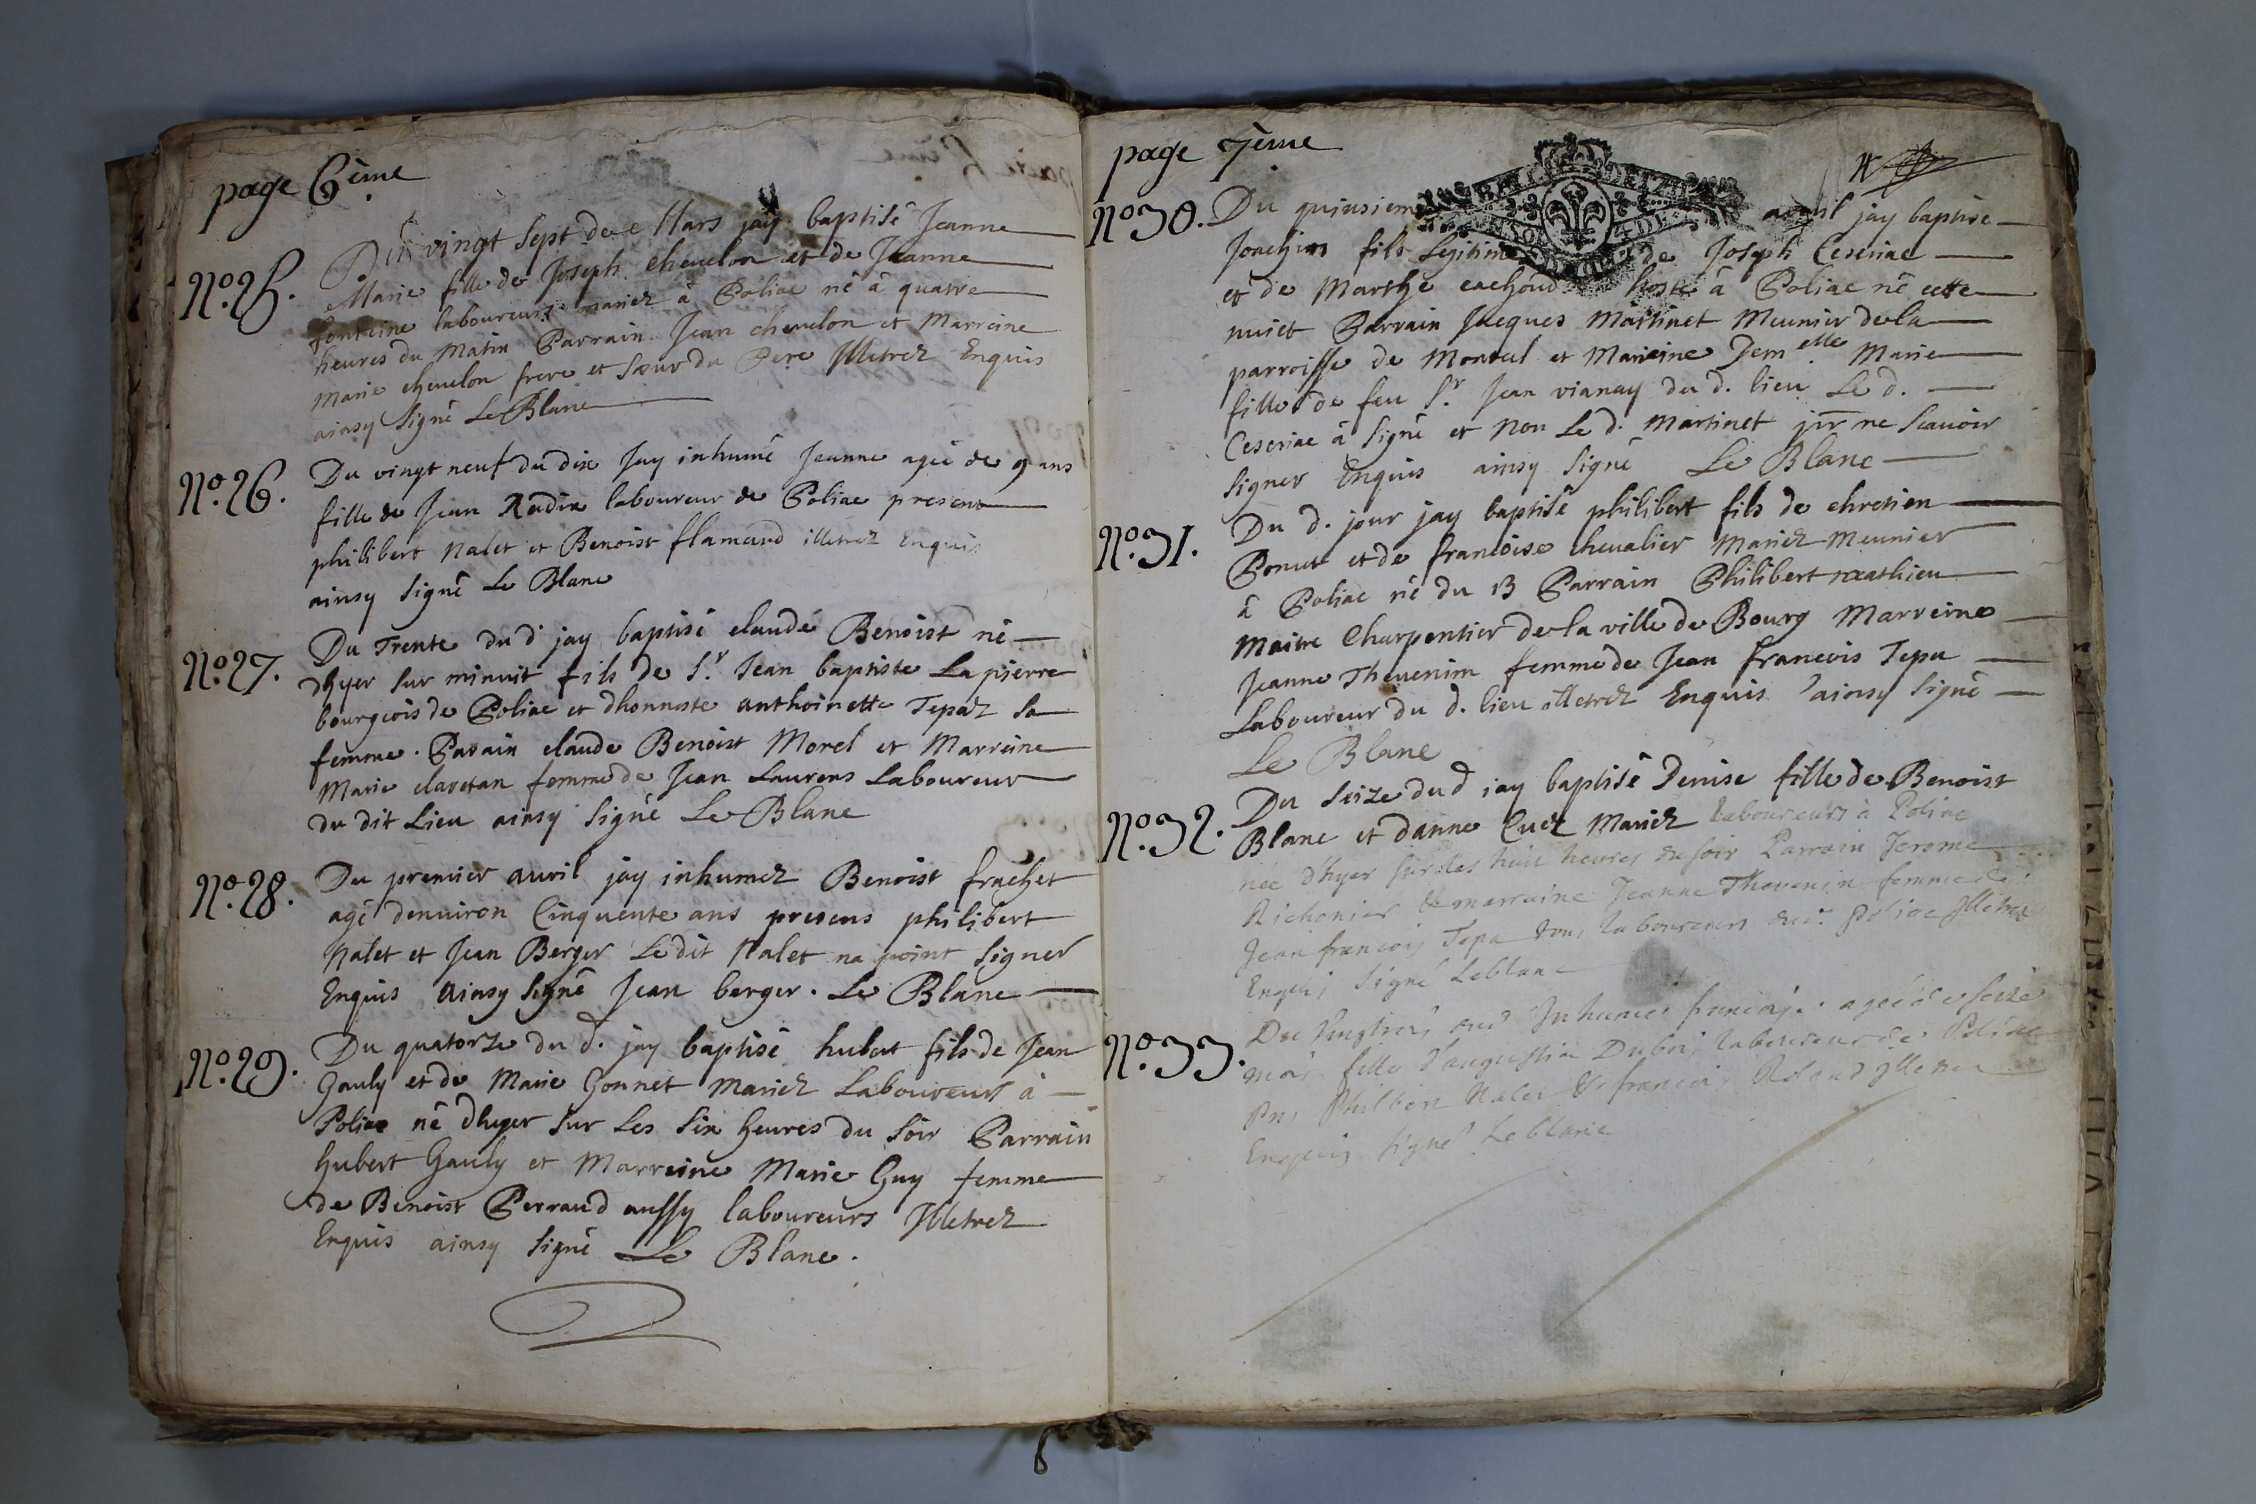 page 6ème
No. 25. Du vingt sept de Mars jay baptisé Jeanne
Marie fille de Joseph chevelon et de Jeanne
fontaine laboureurs mariez à Poliac né à quatre
heures du Matin Parrain Jean chevelon et Marreine
Marie chevelon frere et Sœur du Pere Illetrez Enquis
ainsy Signé Le Blanc
No. 26. Du vingt neuf du dix Jay inhumé Jeanne agée de 9 ans
fille de Jean Radix laboureur de Poliac presens
philibert Nalet et Benoist flamand illetrez Enquis
ainsy Signé Le Blanc
No. 27. Du Trente du d. jay baptisé claude Benoist né
dhyer sur minuit fils de Sr. Jean baptiste Lapierre
bourgeois de Poliac et dhonneste anthoinette Tepaz sa
femme. Parain claude Benoist Morel et Marreine
Marie claretan femme de Jean Laurens Laboureur
du dit Lieu ainsy Signé Le Blanc
No. 28. Du premier auril jay inhumez Benoist frachet
agé denuiron Cinquente ans presens philibert
Nalet et Jean Berger Ledit Nalet na point Signer
Enquis Ainsy Signé Jean berger. Le Blanc
No. 29. Du quatorze du d. jay baptisé hubert fils de Jean
Gauly et de Marie Gonnet Mariez Laboureurs à
Poliac né dhyer sur Les Six heures du Soir Parrain
hubert Gauly et Marreine Marie Guy femme
de Benoist Perraud aussy laboureurs Illetrez
Enquis ainsy Signé Le Blanc.
page 7ème
No. 30. Du quinsieme auril jay baptise
Joachim fils Legitime de Joseph Ceseriac
et de Marthe hoste à Poliac né cette
nuict Parrain Jacques Martinet Meunier de la
parroisse de Montul et Mareine Demelle Marie
fille de feu Sr. Jean vianay du d. lieu Le d.
Ceseriac à Signé et Non Le d. Martinet pr ne Scauoir
Signer Enquis ainsy Signé Le Blanc
No. 31. Du d. jour jay baptisé philibert fils de chretien
Ponut et de francoise chevalier Mariez Meunier
à Poliac né du 13 Parrain Philibert mathieu
Maitre Charpentier de la ville de Bourg Marreine
Jeanne Thevenim femme de Jean francois Tepa
Laboureur du d. lieu illetrez Enquis ainsy Signé
Le Blanc
No. 32. Du Seize du d jay baptisé Denise fille de Benoist
Blanc et danne Cuez Mariez laboureurs à Poliac
née d'hyer sur les huit heures du soir Parrain Jerome
Richonier & marraine Jeanne Thevenin femme de
Jean francois Tepa tous laboureurs dud. Poliac Illetrez
Enquis Signé Leblanc
No. 33. Du vingt dud Inhumé francoise agée de seize
mois fille d'augustin Duboi laboureur de Poliac
Pns Philbert Nalet & francois Roland Illetrez
Enquis Signé Leblanc